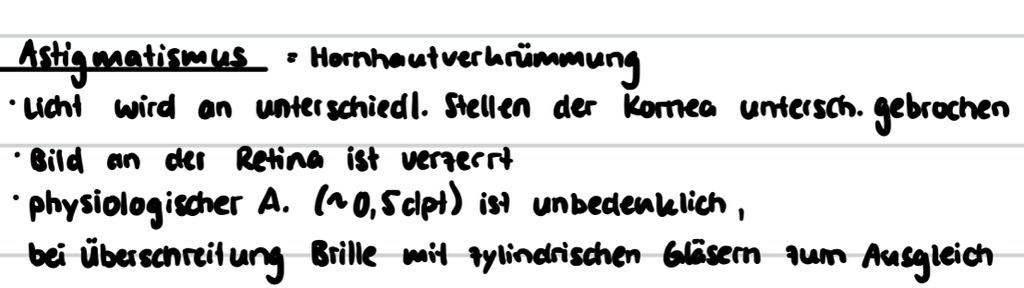 Astigmatismus = Hornhautverkrümmung
· Licht wird an unterschiedl. Stellen der Kornea untersch. gebrochen
· Bild an der Retina ist verzerrt
· physiologischer A. (~0,5dpt) ist unbedenklich,
bei Überschreitung Brille mit zylindrischen Gläsern zum Ausgleich